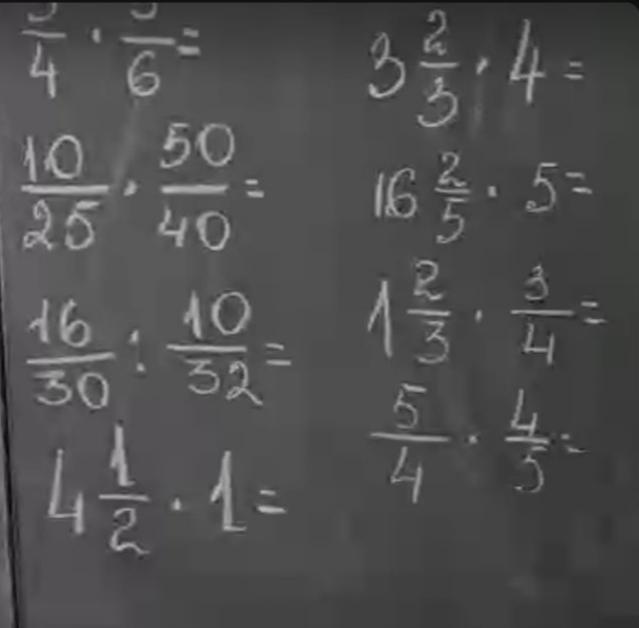 /4 · /6 =
10/25 · 50/40 =
16/30 : 10/32 =
4 1/2 · 1 =
3 2/3 · 4 =
16 2/5 · 5 =
1 2/3 · 3/4 =
5/4 · 4/5 =